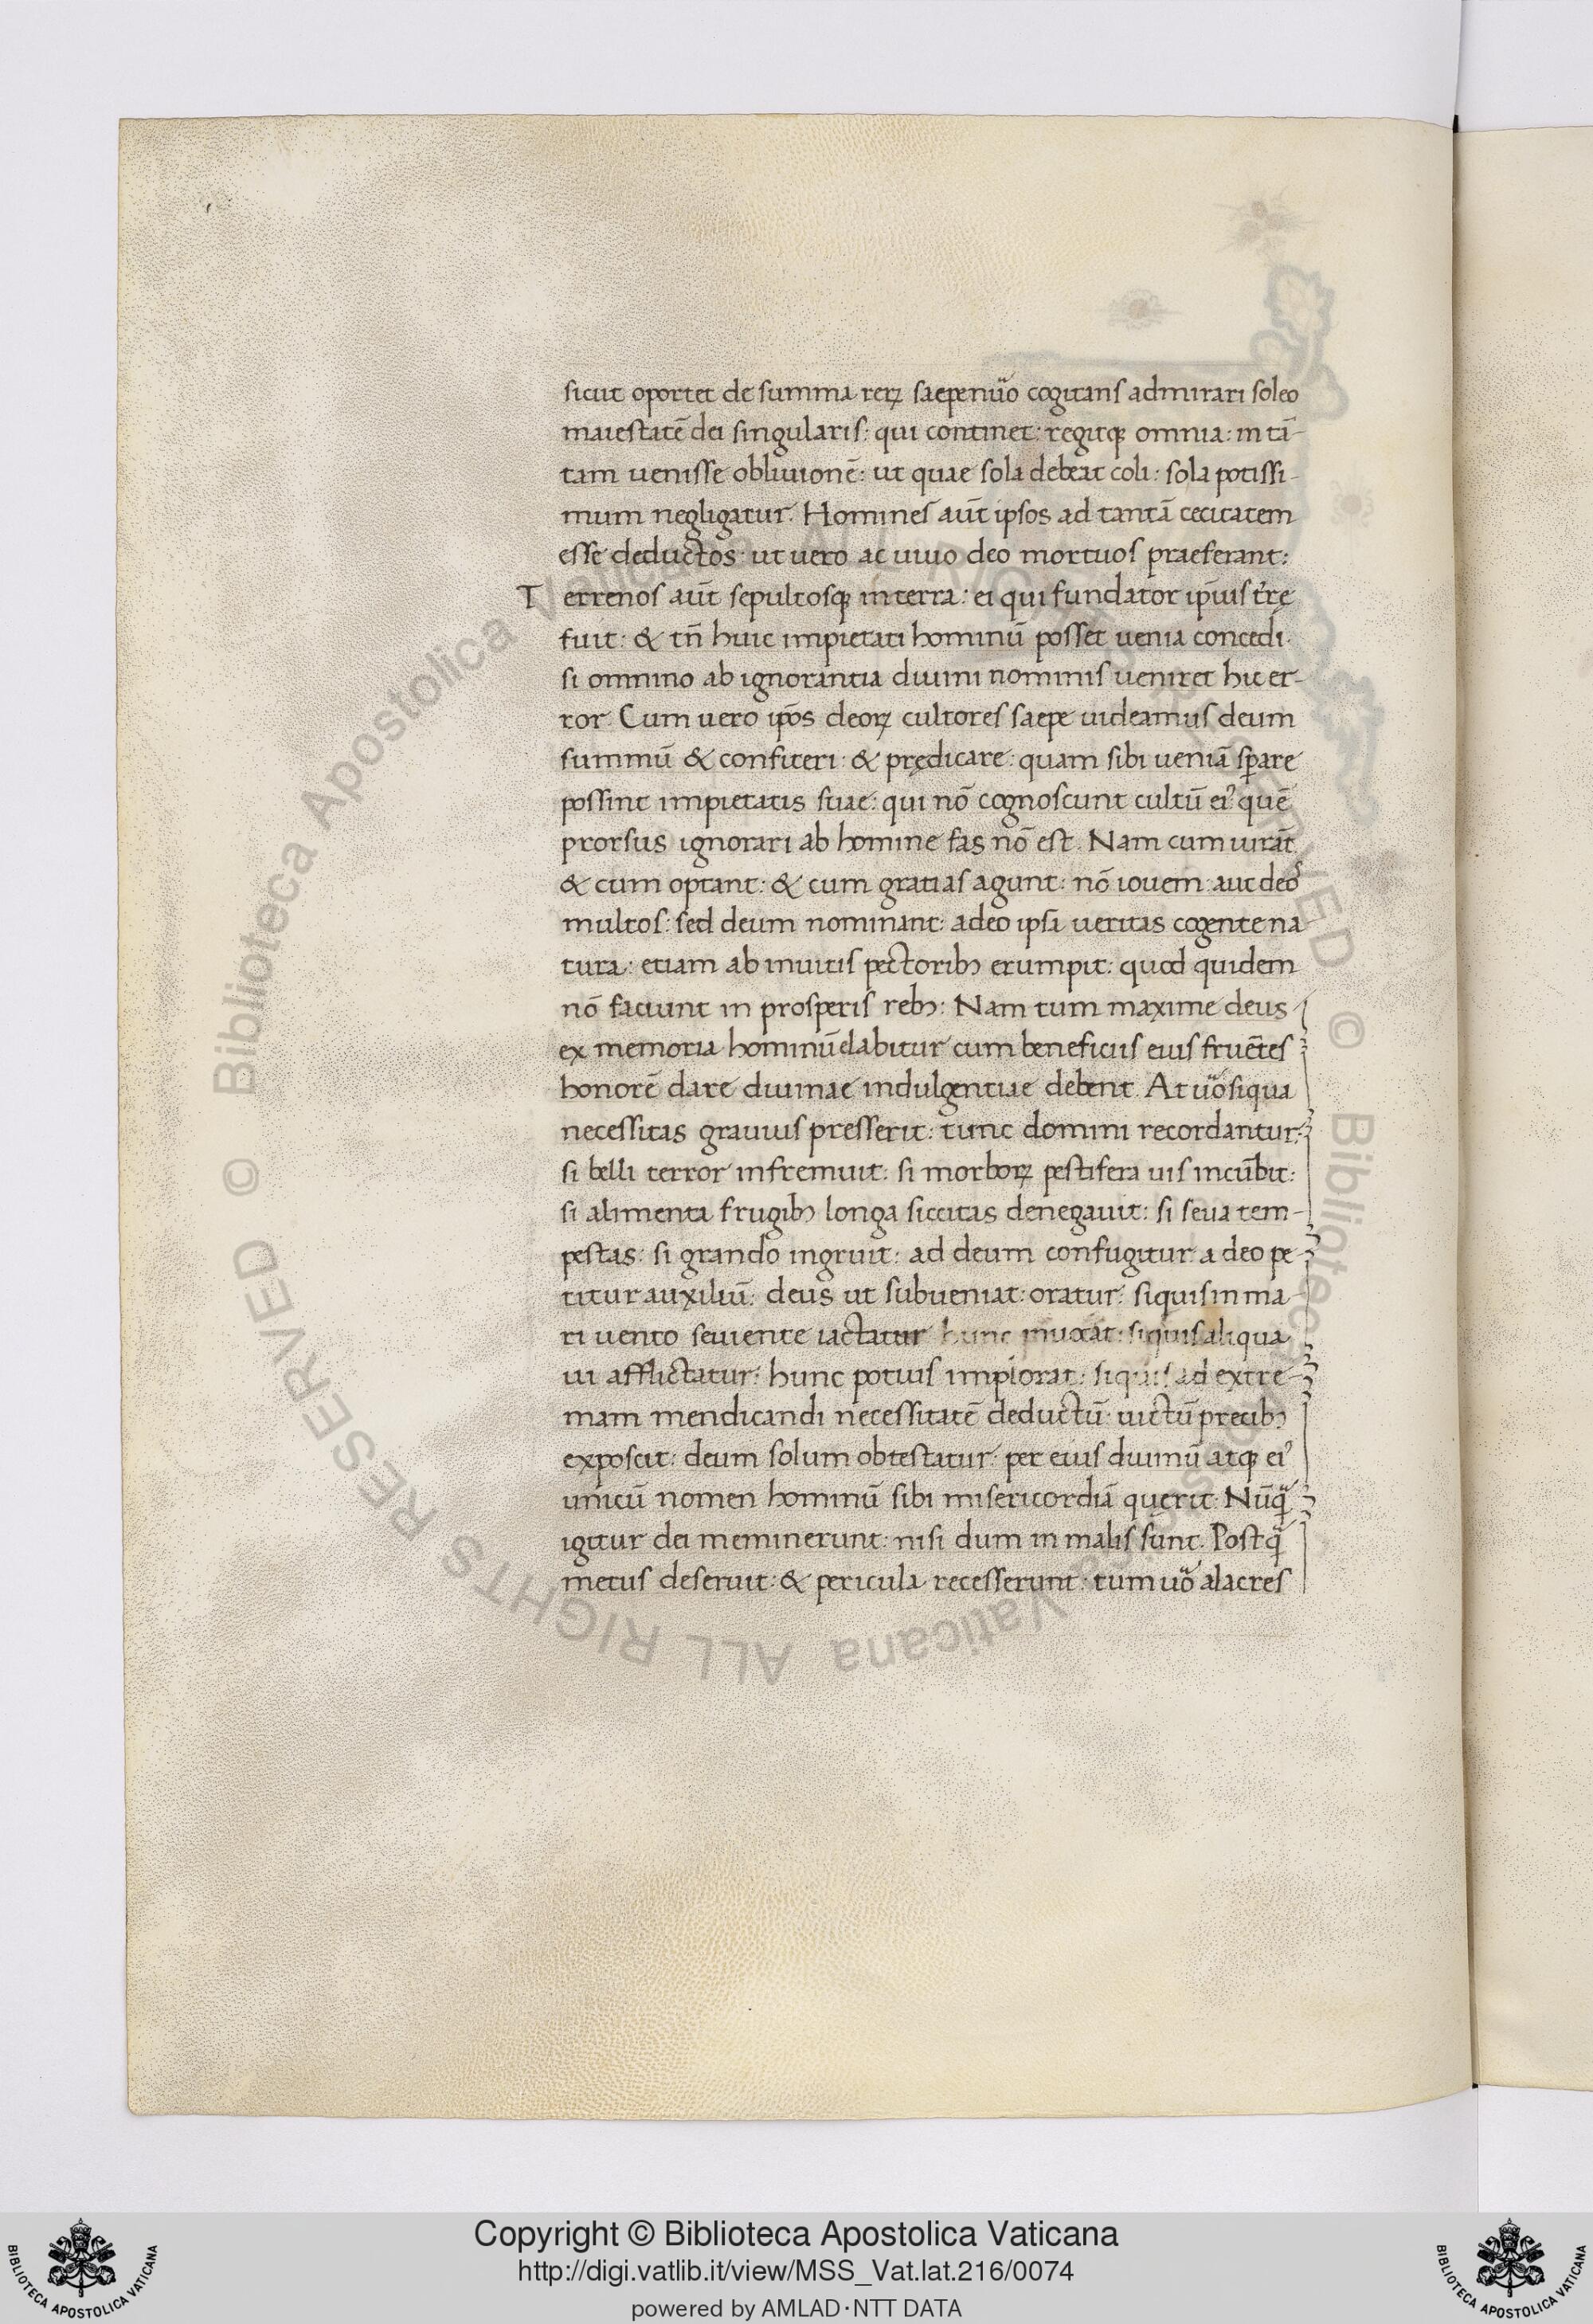 sicut oportet de summa rerꝝ saepenūo cogitans admirari soleo
maiestatē dei singularis: qui continet: regitqꝫ omnia: in tā-
tam uenisse obliuionē: ut quae sola debeat coli: sola potissi-
mum negligatur. Homines aūt ipsos ad tantā cecitatem
esse deductos: ut uero ac uiuo deo mortuos praeferant:
Terrenos aūt sepultosqꝫ in terra: ei qui fundator ip̄ius t̄rę
fuit: & tn̄ huic impietati hominū posset uenia concedi.
si omnino ab ignorantia diuini nominis ueniret hic er-
ror. Cum uero ip̄os deoꝝ cultores saepe uideamus deum
summū & confiteri: & prędicare: quam sibi ueniā sꝑare
possint impietatis suae: qui nō cognoscunt cultū eiꝰ quē
prorsus ignorari ab homine fas nō est. Nam cum iurāt
& cum optant: & cum gratias agunt: nō iouem: aut deos
multos: sed deum nominant: adeo ipsa ueritas cogente na
tura: etiam ab inuitis pectoribꝫ erumpit: quod quidem
nō faciunt in prosperis rebꝫ: Nam tum maxime deus
ex memoria hominū elabitur cum beneficiis eius fruētes
honorē dare diuinae indulgentiae debent. At uō siqua
necessitas grauius presserit: tunc domini recordantur:
si belli terror infremuit: si morboꝝ pestifera uis incūbit:
si alimenta frugibꝫ longa siccitas denegauit: si seua tem-
pestas: si grando ingruit: ad deum confugitur: a deo pe-
titur auxiliū: deus ut subueniat: oratur: siquis in ma
ri uento seuiente iactatur hunc inuocat: siquis aliqua
ui afflictatur: hunc potius implorat: siquis ad extre-
mam mendicandi necessitatē deductū: uictū precibꝫ
exposcit: deum solum obtestatur: per eius diuinū atqꝫ eiꝰ
unicū nomen hominū sibi misericordiā querit: Nūq̄
igitur dei meminerunt: nisi dum in malis sunt. Postq̄
metus deseruit: & pericula recesserunt: tum uō alacres
© Biblioteca Apostolica Vaticana ALL RIGHTS RESERVED © Biblioteca Apostolica Vaticana ALL RIGHTS RESERVED
Copyright © Biblioteca Apostolica Vaticana
http://digi.vatlib.it/view/MSS_Vat.lat.216/0074
powered by AMLAD·NTT DATA
BIBLIOTECA APOSTOLICA VATICANA
BIBLIOTECA APOSTOLICA VATICANA